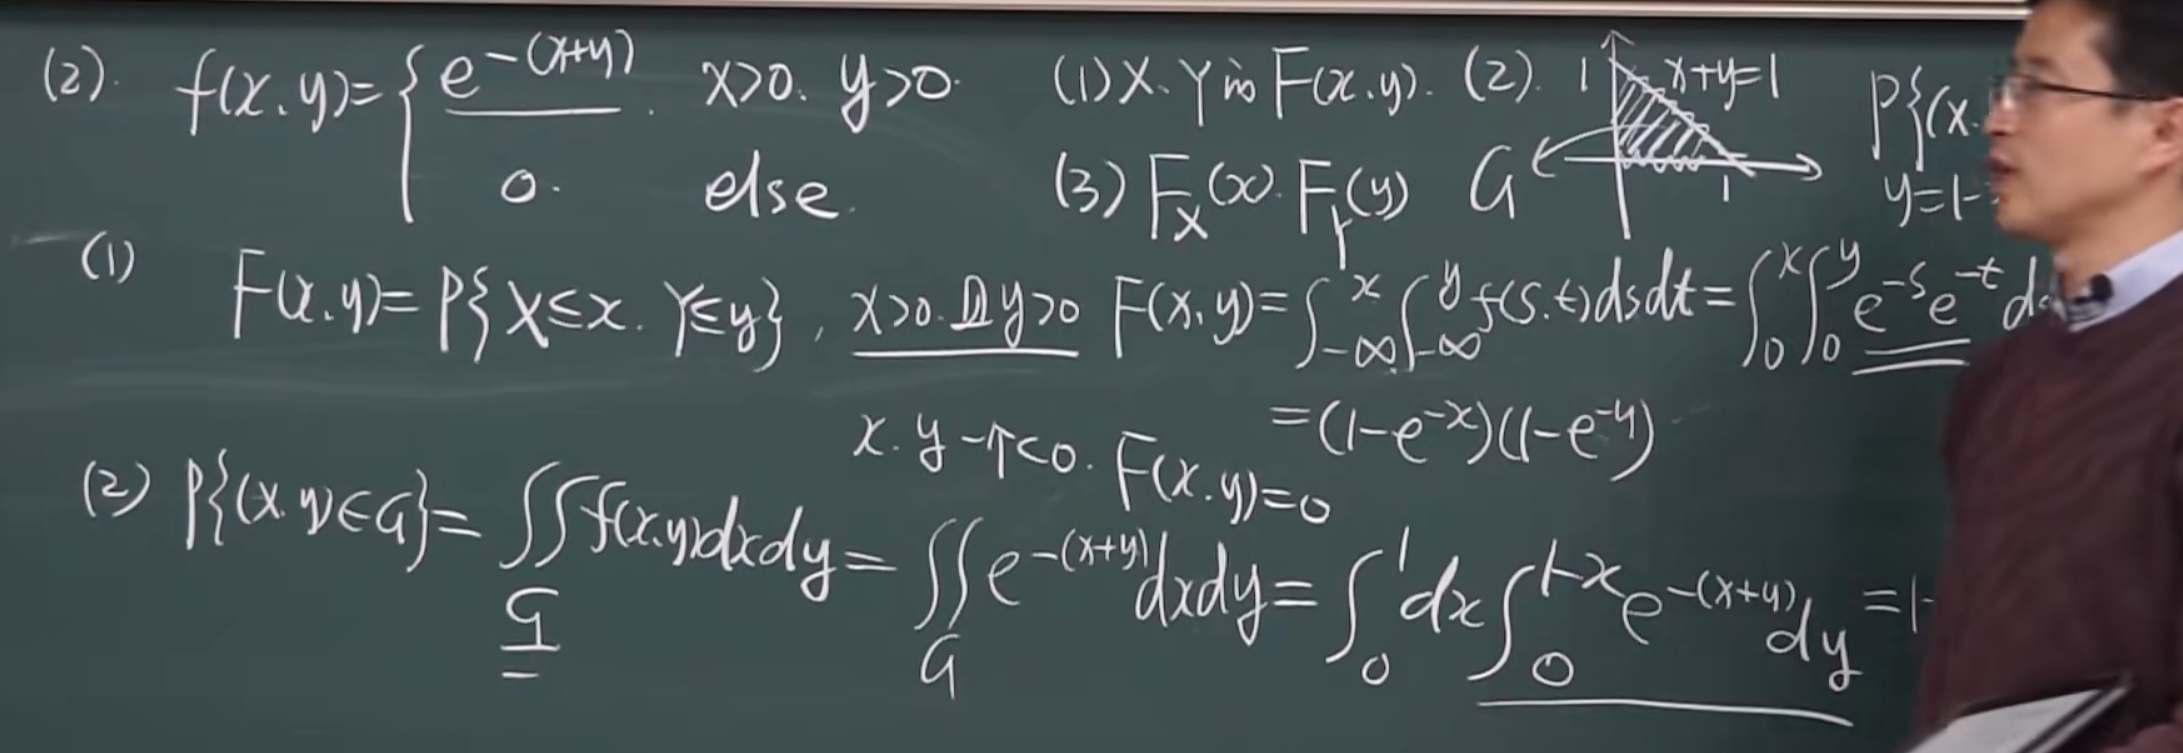 (2). f(x.y)={ e^-(x+y). x>0. y>0. (1) X. Y的 F(x.y). (2). 1 x+y=1 P{(x.
0. else. (3) F_X(x). F_Y(y) G 1 y=1-
(1) F(x.y)=P{X≤x. Y≤y}, x>0.且y>0 F(x.y)=∫_-∞^x∫_-∞^y f(s.t)dsdt=∫_0^x∫_0^y e^-s e^-t d
=(1-e^-x)(1-e^-y)
x.y一个<0. F(x.y)=0
(2) P{(x.y)∈G}=∬_G f(x.y)dxdy=∬_G e^-(x+y)dxdy=∫_0^1dx∫_0^1-x e^-(x+y)dy=1-